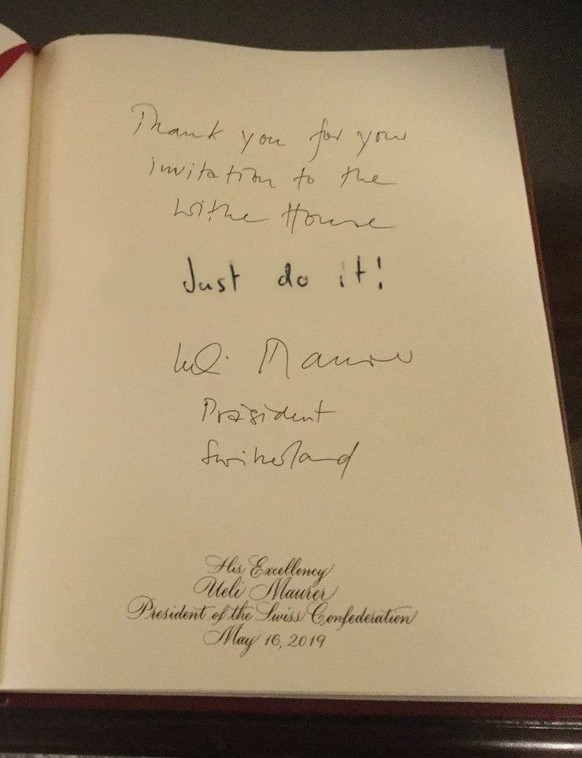 Thank you for your
invitation to the
Withe House
Just do it!
Ueli Maurer
Präsident
Switzerland
His Excellency
Ueli Maurer
President of the Swiss Confederation
May 16, 2019